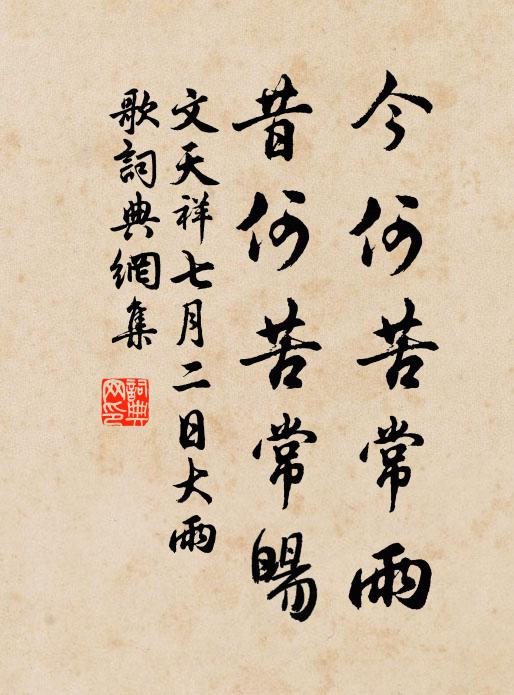 今何苦常雨
昔何苦常暘
文天祥七月二日大雨
歌詞典網集
詞典
网印